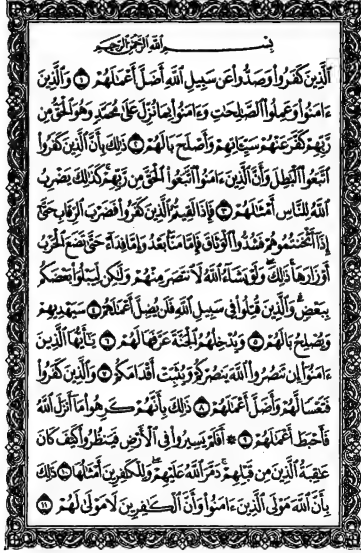 بِسْمِ ٱللَّهِ ٱلرَّحْمَٰنِ ٱلرَّحِيمِ
ٱلَّذِينَ كَفَرُوا۟ وَصَدُّوا۟ عَن سَبِيلِ ٱللَّهِ أَضَلَّ أَعْمَٰلَهُمْ ١ وَٱلَّذِينَ
ءَامَنُوا۟ وَعَمِلُوا۟ ٱلصَّٰلِحَٰتِ وَءَامَنُوا۟ بِمَا نُزِّلَ عَلَىٰ مُحَمَّدٍ وَهُوَ ٱلْحَقُّ مِن
رَّبِّهِمْ كَفَّرَ عَنْهُمْ سَيِّـَٔاتِهِمْ وَأَصْلَحَ بَالَهُمْ ٢ ذَٰلِكَ بِأَنَّ ٱلَّذِينَ كَفَرُوا۟
ٱتَّبَعُوا۟ ٱلْبَٰطِلَ وَأَنَّ ٱلَّذِينَ ءَامَنُوا۟ ٱتَّبَعُوا۟ ٱلْحَقَّ مِن رَّبِّهِمْ كَذَٰلِكَ يَضْرِبُ
ٱللَّهُ لِلنَّاسِ أَمْثَٰلَهُمْ ٣ فَإِذَا لَقِيتُمُ ٱلَّذِينَ كَفَرُوا۟ فَضَرْبَ ٱلرِّقَابِ حَتَّىٰٓ
إِذَآ أَثْخَنتُمُوهُمْ فَشُدُّوا۟ ٱلْوَثَاقَ فَإِمَّا مَنًّۢا بَعْدُ وَإِمَّا فِدَآءً حَتَّىٰ تَضَعَ ٱلْحَرْبُ
أَوْزَارَهَا ذَٰلِكَ وَلَوْ يَشَآءُ ٱللَّهُ لَٱنتَصَرَ مِنْهُمْ وَلَٰكِن لِّيَبْلُوَا۟ بَعْضَكُم
بِبَعْضٍ وَٱلَّذِينَ قُتِلُوا۟ فِى سَبِيلِ ٱللَّهِ فَلَن يُضِلَّ أَعْمَٰلَهُمْ ٤ سَيَهْدِيهِمْ
وَيُصْلِحُ بَالَهُمْ ٥ وَيُدْخِلُهُمُ ٱلْجَنَّةَ عَرَّفَهَا لَهُمْ ٦ يَٰٓأَيُّهَا ٱلَّذِينَ
ءَامَنُوٓا۟ إِن تَنصُرُوا۟ ٱللَّهَ يَنصُرْكُمْ وَيُثَبِّتْ أَقْدَامَكُمْ ٧ وَٱلَّذِينَ كَفَرُوا۟
فَتَعْسًا لَّهُمْ وَأَضَلَّ أَعْمَٰلَهُمْ ٨ ذَٰلِكَ بِأَنَّهُمْ كَرِهُوا۟ مَآ أَنزَلَ ٱللَّهُ
فَأَحْبَطَ أَعْمَٰلَهُمْ ٩ ۞ أَفَلَمْ يَسِيرُوا۟ فِى ٱلْأَرْضِ فَيَنظُرُوا۟ كَيْفَ كَانَ
عَٰقِبَةُ ٱلَّذِينَ مِن قَبْلِهِمْ دَمَّرَ ٱللَّهُ عَلَيْهِمْ وَلِلْكَٰفِرِينَ أَمْثَٰلُهَا ١٠ ذَٰلِكَ
بِأَنَّ ٱللَّهَ مَوْلَى ٱلَّذِينَ ءَامَنُوا۟ وَأَنَّ ٱلْكَٰفِرِينَ لَا مَوْلَىٰ لَهُمْ ١١